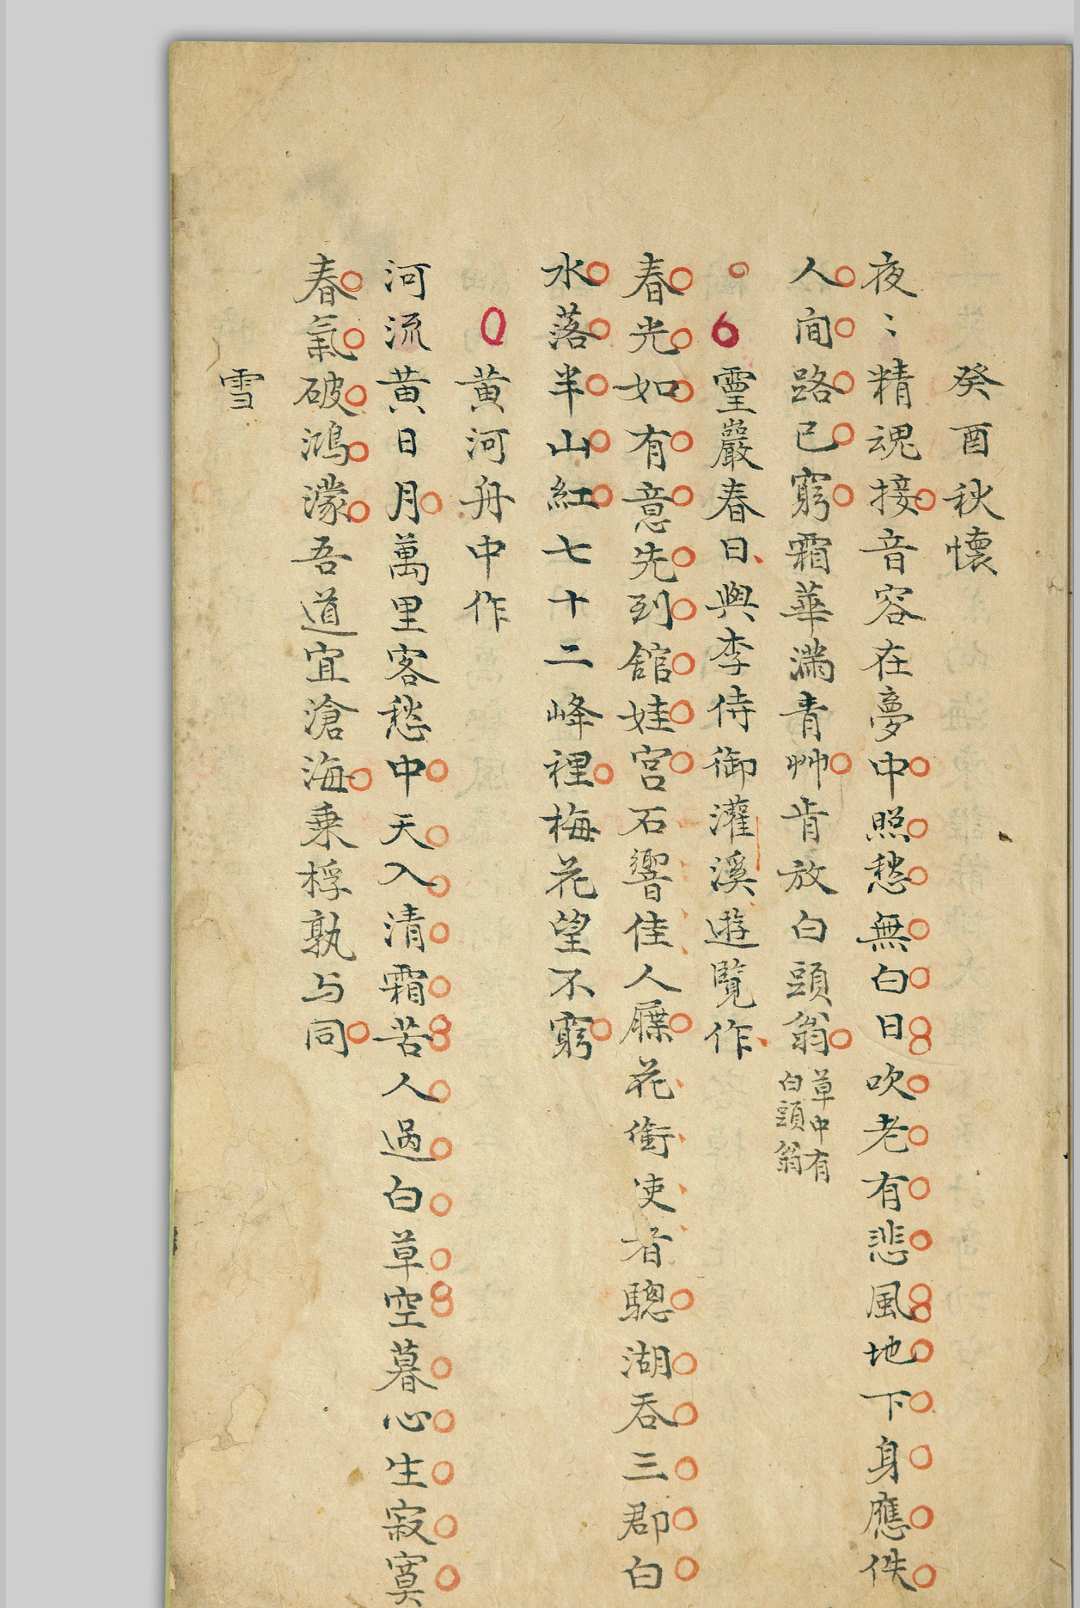 癸酉秋懷
夜〻精魂接音容在夢中照愁無白日吹老有悲風地下身應佚
人间路已窮霜華滿青艸肯放白頭翁草中有
白頭翁
靈巖春日與李侍御灌溪遊覽作
春光如有意先到舘娃宮石響佳人屧花銜使者驄湖吞三郡白
水落半山紅七十二峰裡梅花望不窮
黄河舟中作
河流黄日月萬里客愁中天入清霜苦人過白草空暮心生寂寞
春氣破鴻濛吾道宜滄海乗桴孰与同
雪